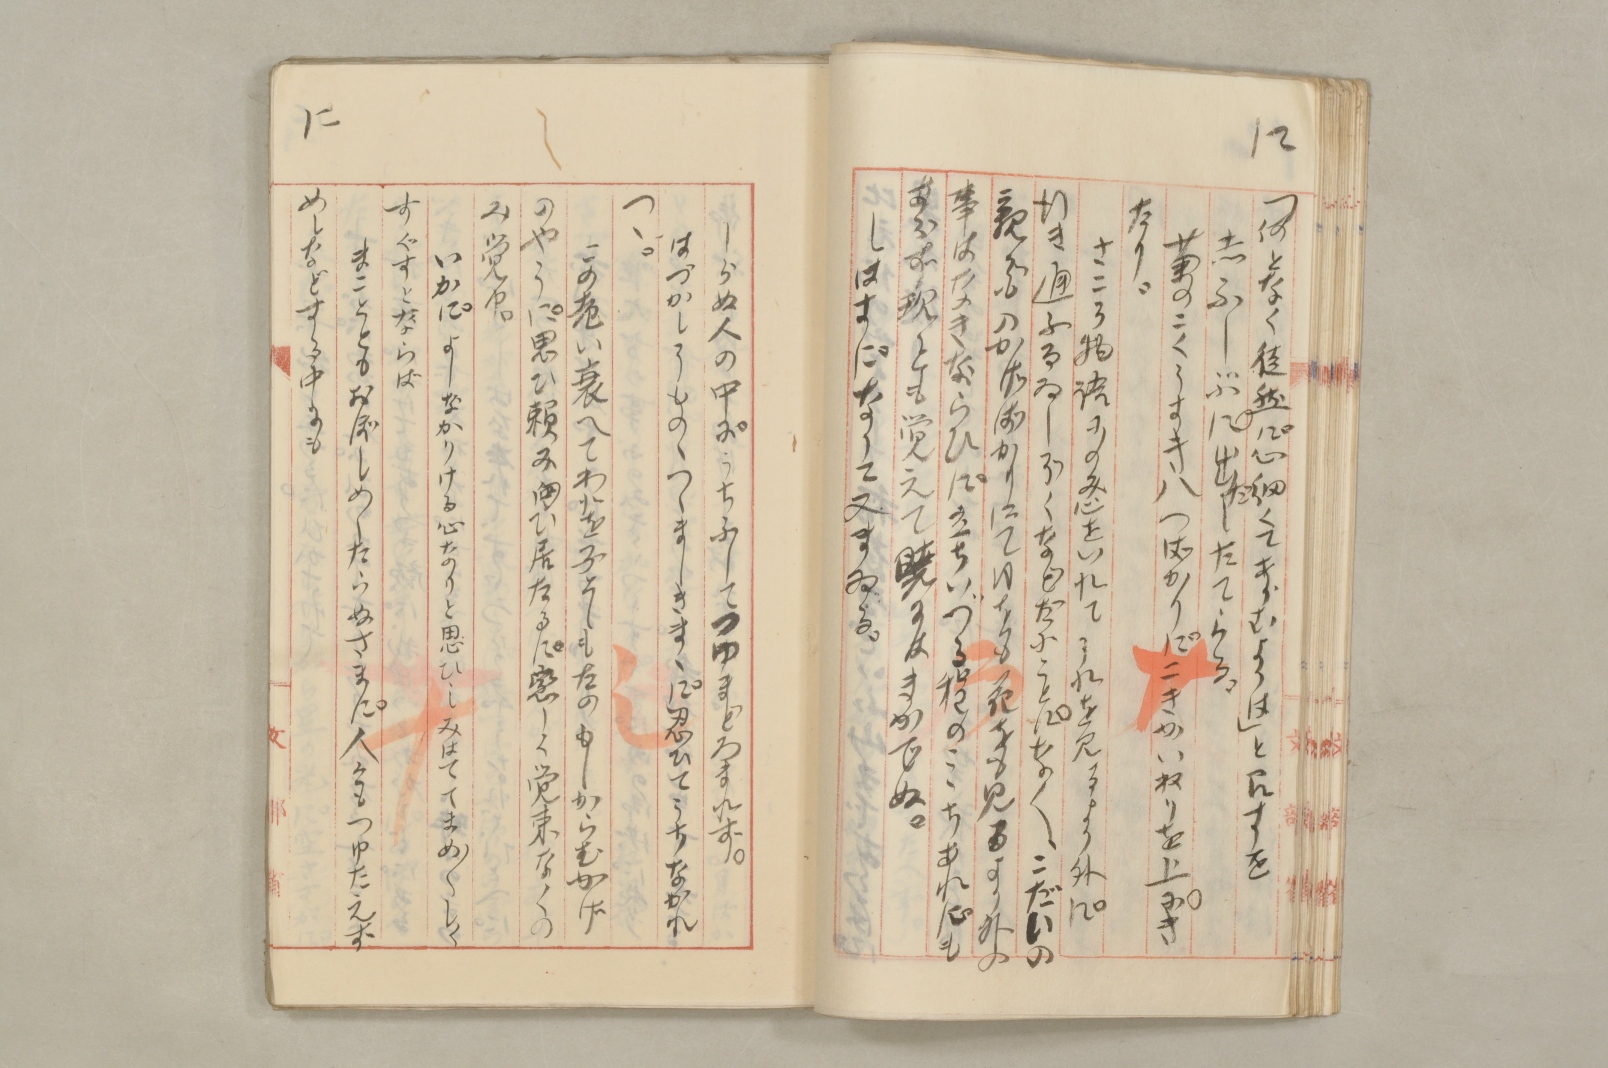 にて
「何となく徒然に心細くてあらむよりは」と召すを
志ぶしぶに出したてらる。
菊のこくうすき八つばかりに二きぬい权りを上にき
たり。
さこそ物語にのみ心をいれてそれを見るより外に
行き通ふるゐしぞくなどだにことになく、こだいの
親どものかげばかりにて月をも花をも見るより外の
事はなきならひに立ちいづる程のこゝちあれにも
あらず現とも覚えで暁にはまかでぬ。
しはすになりて又まゐる。
に
しらぬ人の中にうちふしてつゆまどろまれず。
はづかしうものゝつゝましきまゝに忍びてうちながれ
つゝ。
この老い衰へてわれを子としもたのもしからむかげ
のやうに思ひ頼み向ひ居たるに恋しく覚束なくの
み覚ゆ。
いかによしなかりける心なりと思ひしみはててまめまめしく
すぐすとならば
まことともおぼしめしたらぬさまに人々もつゆたえず
めしなどする中にも
文部省